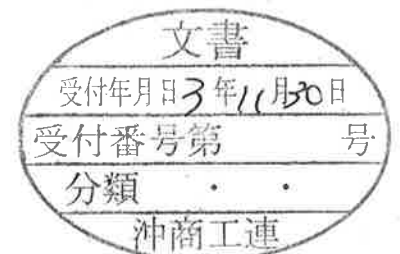 文書
受付年月日3年11月30日
受付番号第 号
分類 ・ ・
沖商工連